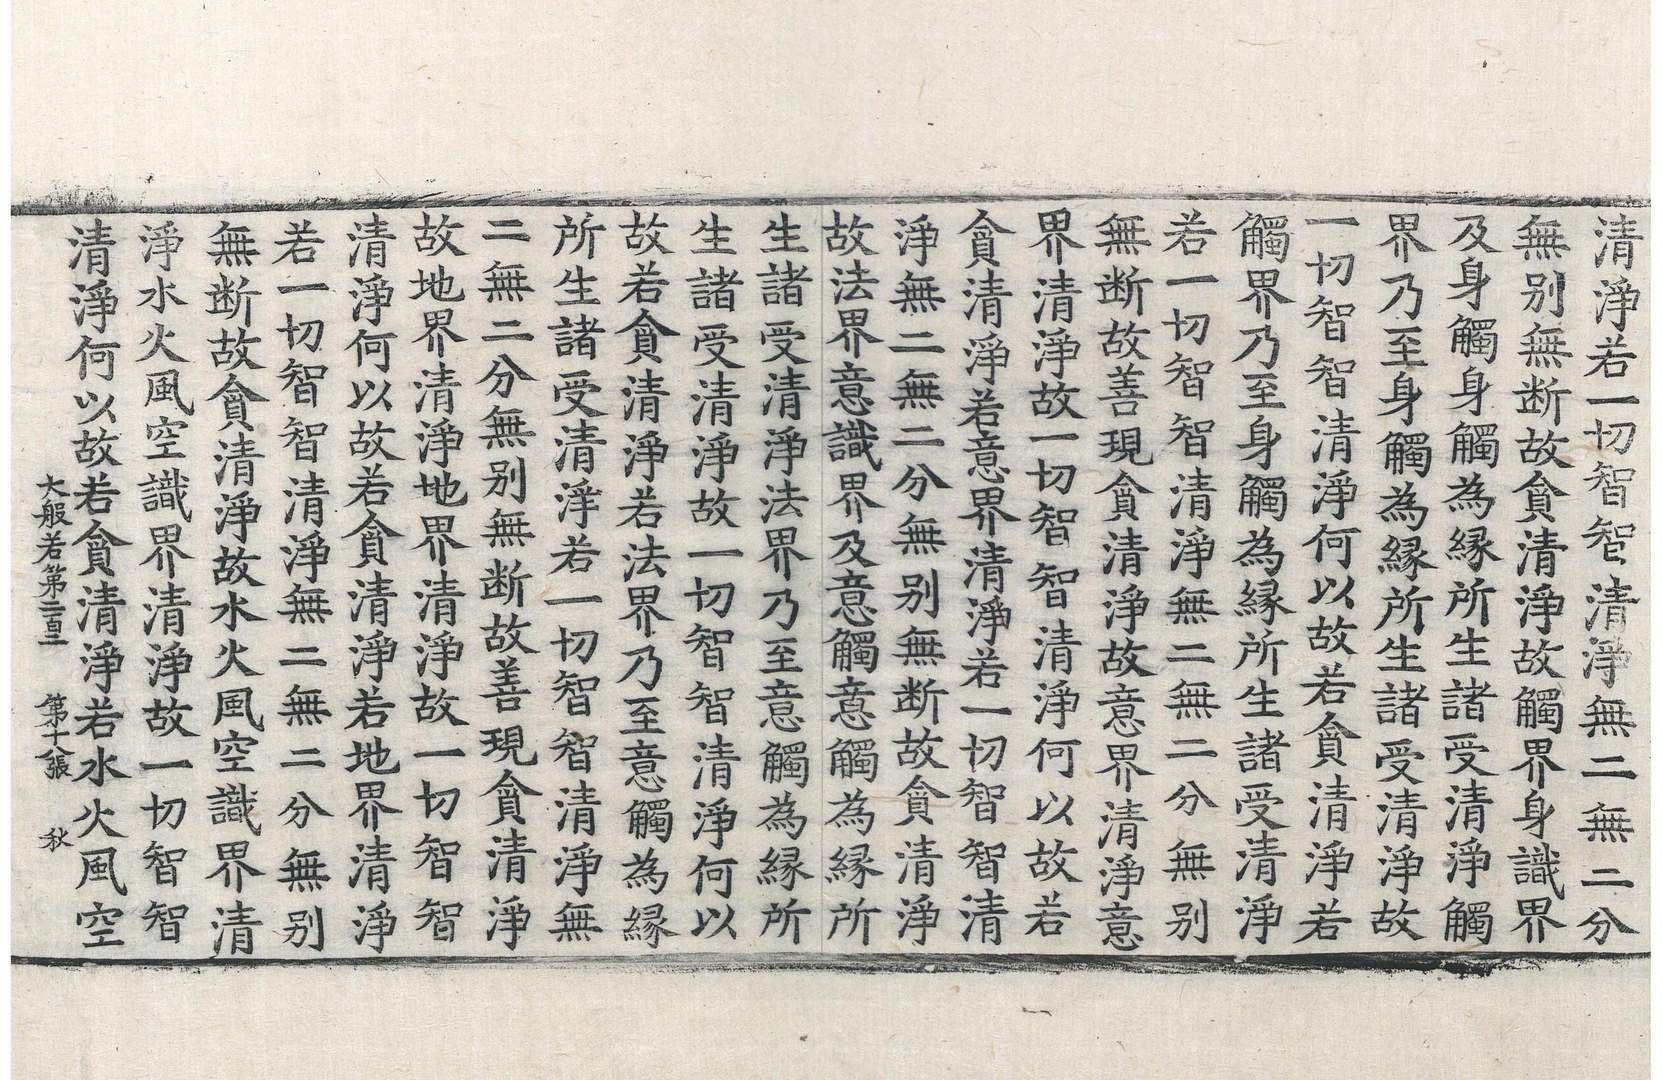 清淨若一切智智清淨無二無二分
無别無断故貪清淨故觸界身識界
及身觸身觸為縁所生諸受清淨觸
界乃至身觸為縁所生諸受清淨故
一切智智清淨何以故若貪清淨若
觸界乃至身觸為縁所生諸受清淨
若一切智智清淨無二無二分無别
無断故善現貪清淨故意界清淨意
界清淨故一切智智清淨何以故若
貪清淨若意界清淨若一切智智清
淨無二無二分無别無断故貪清淨
故法界意識界及意觸意觸為縁所
生諸受清淨法界乃至意觸為縁所
生諸受清淨故一切智智清淨何以
故若貪清淨若法界乃至意觸為縁
所生諸受清淨若一切智智清淨無
二無二分無别無断故善現貪清淨
故地界清淨地界清淨故一切智智
清淨何以故若貪清淨若地界清淨
若一切智智清淨無二無二分無别
無断故貪清淨故水火風空識界清
淨水火風空識界清淨故一切智智
清淨何以故若貪清淨若水火風空
大般若第二百二 第十八張 秋